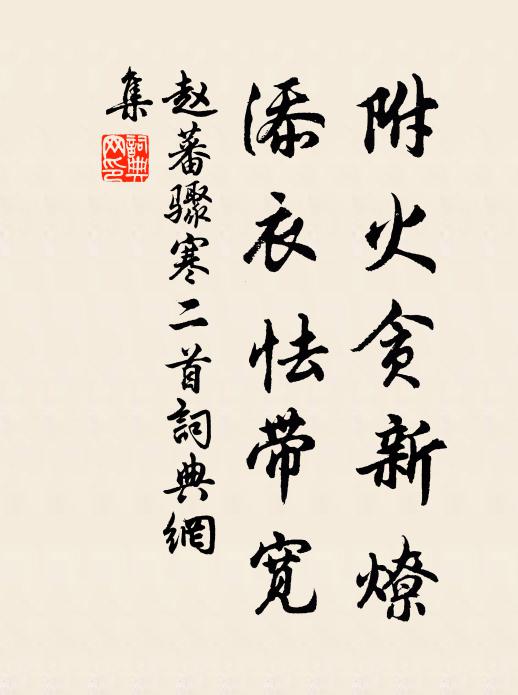 附火贪新燎
添衣怯带宽
赵蕃骤寒二首詞典網
集
詞典網印